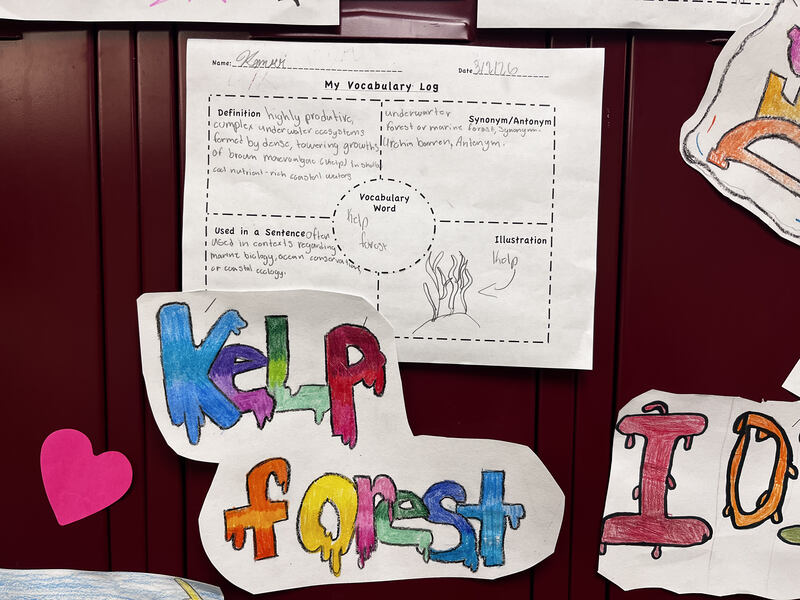 Name: Kamsi
Date 3/2/26
My Vocabulary Log
Definition highly produtive,
complex underwater ecosystems
formed by dense, towering growths
of brown macroalgae (kelp) in shallo
cool nutrient-rich coastal waters
underwarter
forest or marine forest, Synonym.
Synonym/Antonym
Urchin barren, Antonym.
Vocabulary
Word
kelp
forest
Used in a Sentence Often
used in contexts regarding
marine biology, ocean conservation,
or coastal ecology.
Illustration
kelp
KeLp
forest
IO